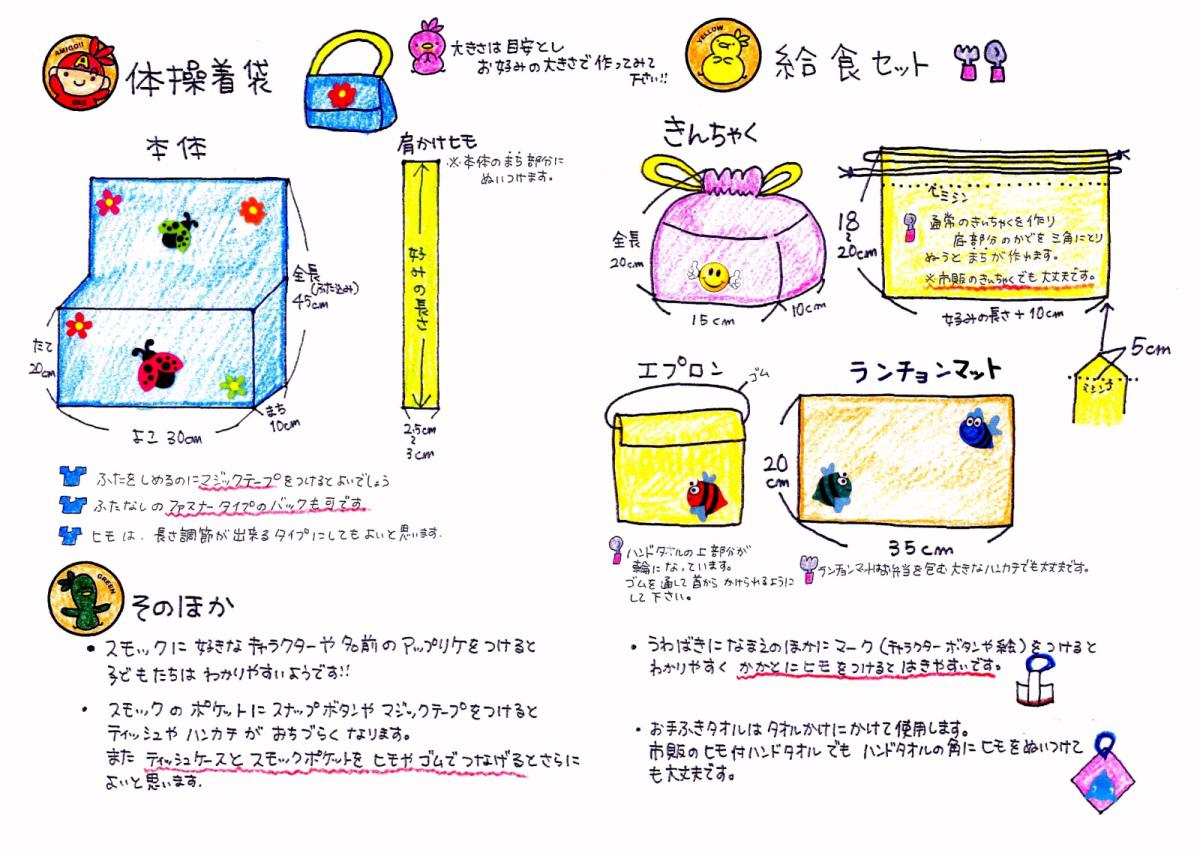 AMIGO!!
RED
体操着袋
大きさは目安とし
お好みの大きさで作ってみて
下さい!!
本体
全長
(ふた込み)
45cm
たて
20cm
よこ 30cm
まち
10cm
肩かけヒモ
※本体のまち部分に
ぬいつけます。
好みの長さ
2.5cm
〜
3cm
ふたをしめるのにマジックテープをつけるとよいでしょう
ふたなしのファスナータイプのバックも可です。
ヒモは、長さ調節が出来るタイプにしてもよいと思います。
YELLOW
給食セット
きんちゃく
全長
20cm
15cm
10cm
18
〜
20cm
ミシン
通常のきんちゃくを作り
底部分のかどを三角にとり
ぬうとまちが作れます。
※市販のきんちゃくでも大丈夫です。
好みの長さ+10cm
5cm
ミシン
エプロン
ゴム
ハンドタオルの上部分が
輪になっています。
ゴムを通して首からかけられるように
して下さい。
ランチョンマット
20
cm
35cm
ランチョンマットはお弁当を包む大きなハンカチでも大丈夫です。
GREEN
そのほか
・スモックに好きなキャラクターや名前のアップリケをつけると
子どもたちはわかりやすいようです!!
・スモックのポケットにスナップボタンやマジックテープをつけると
ティッシュやハンカチがおちづらくなります。
またティッシュケースとスモックポケットをヒモやゴムでつなげるとさらに
よいと思います。
・うわばきになまえのほかにマーク(キャラクターボタンや絵)をつけると
わかりやすくかかとにヒモをつけるとはきやすいです。
・お手ふきタオルはタオルかけにかけて使用します。
市販のヒモ付ハンドタオルでもハンドタオルの角にヒモをぬいつけて
も大丈夫です。